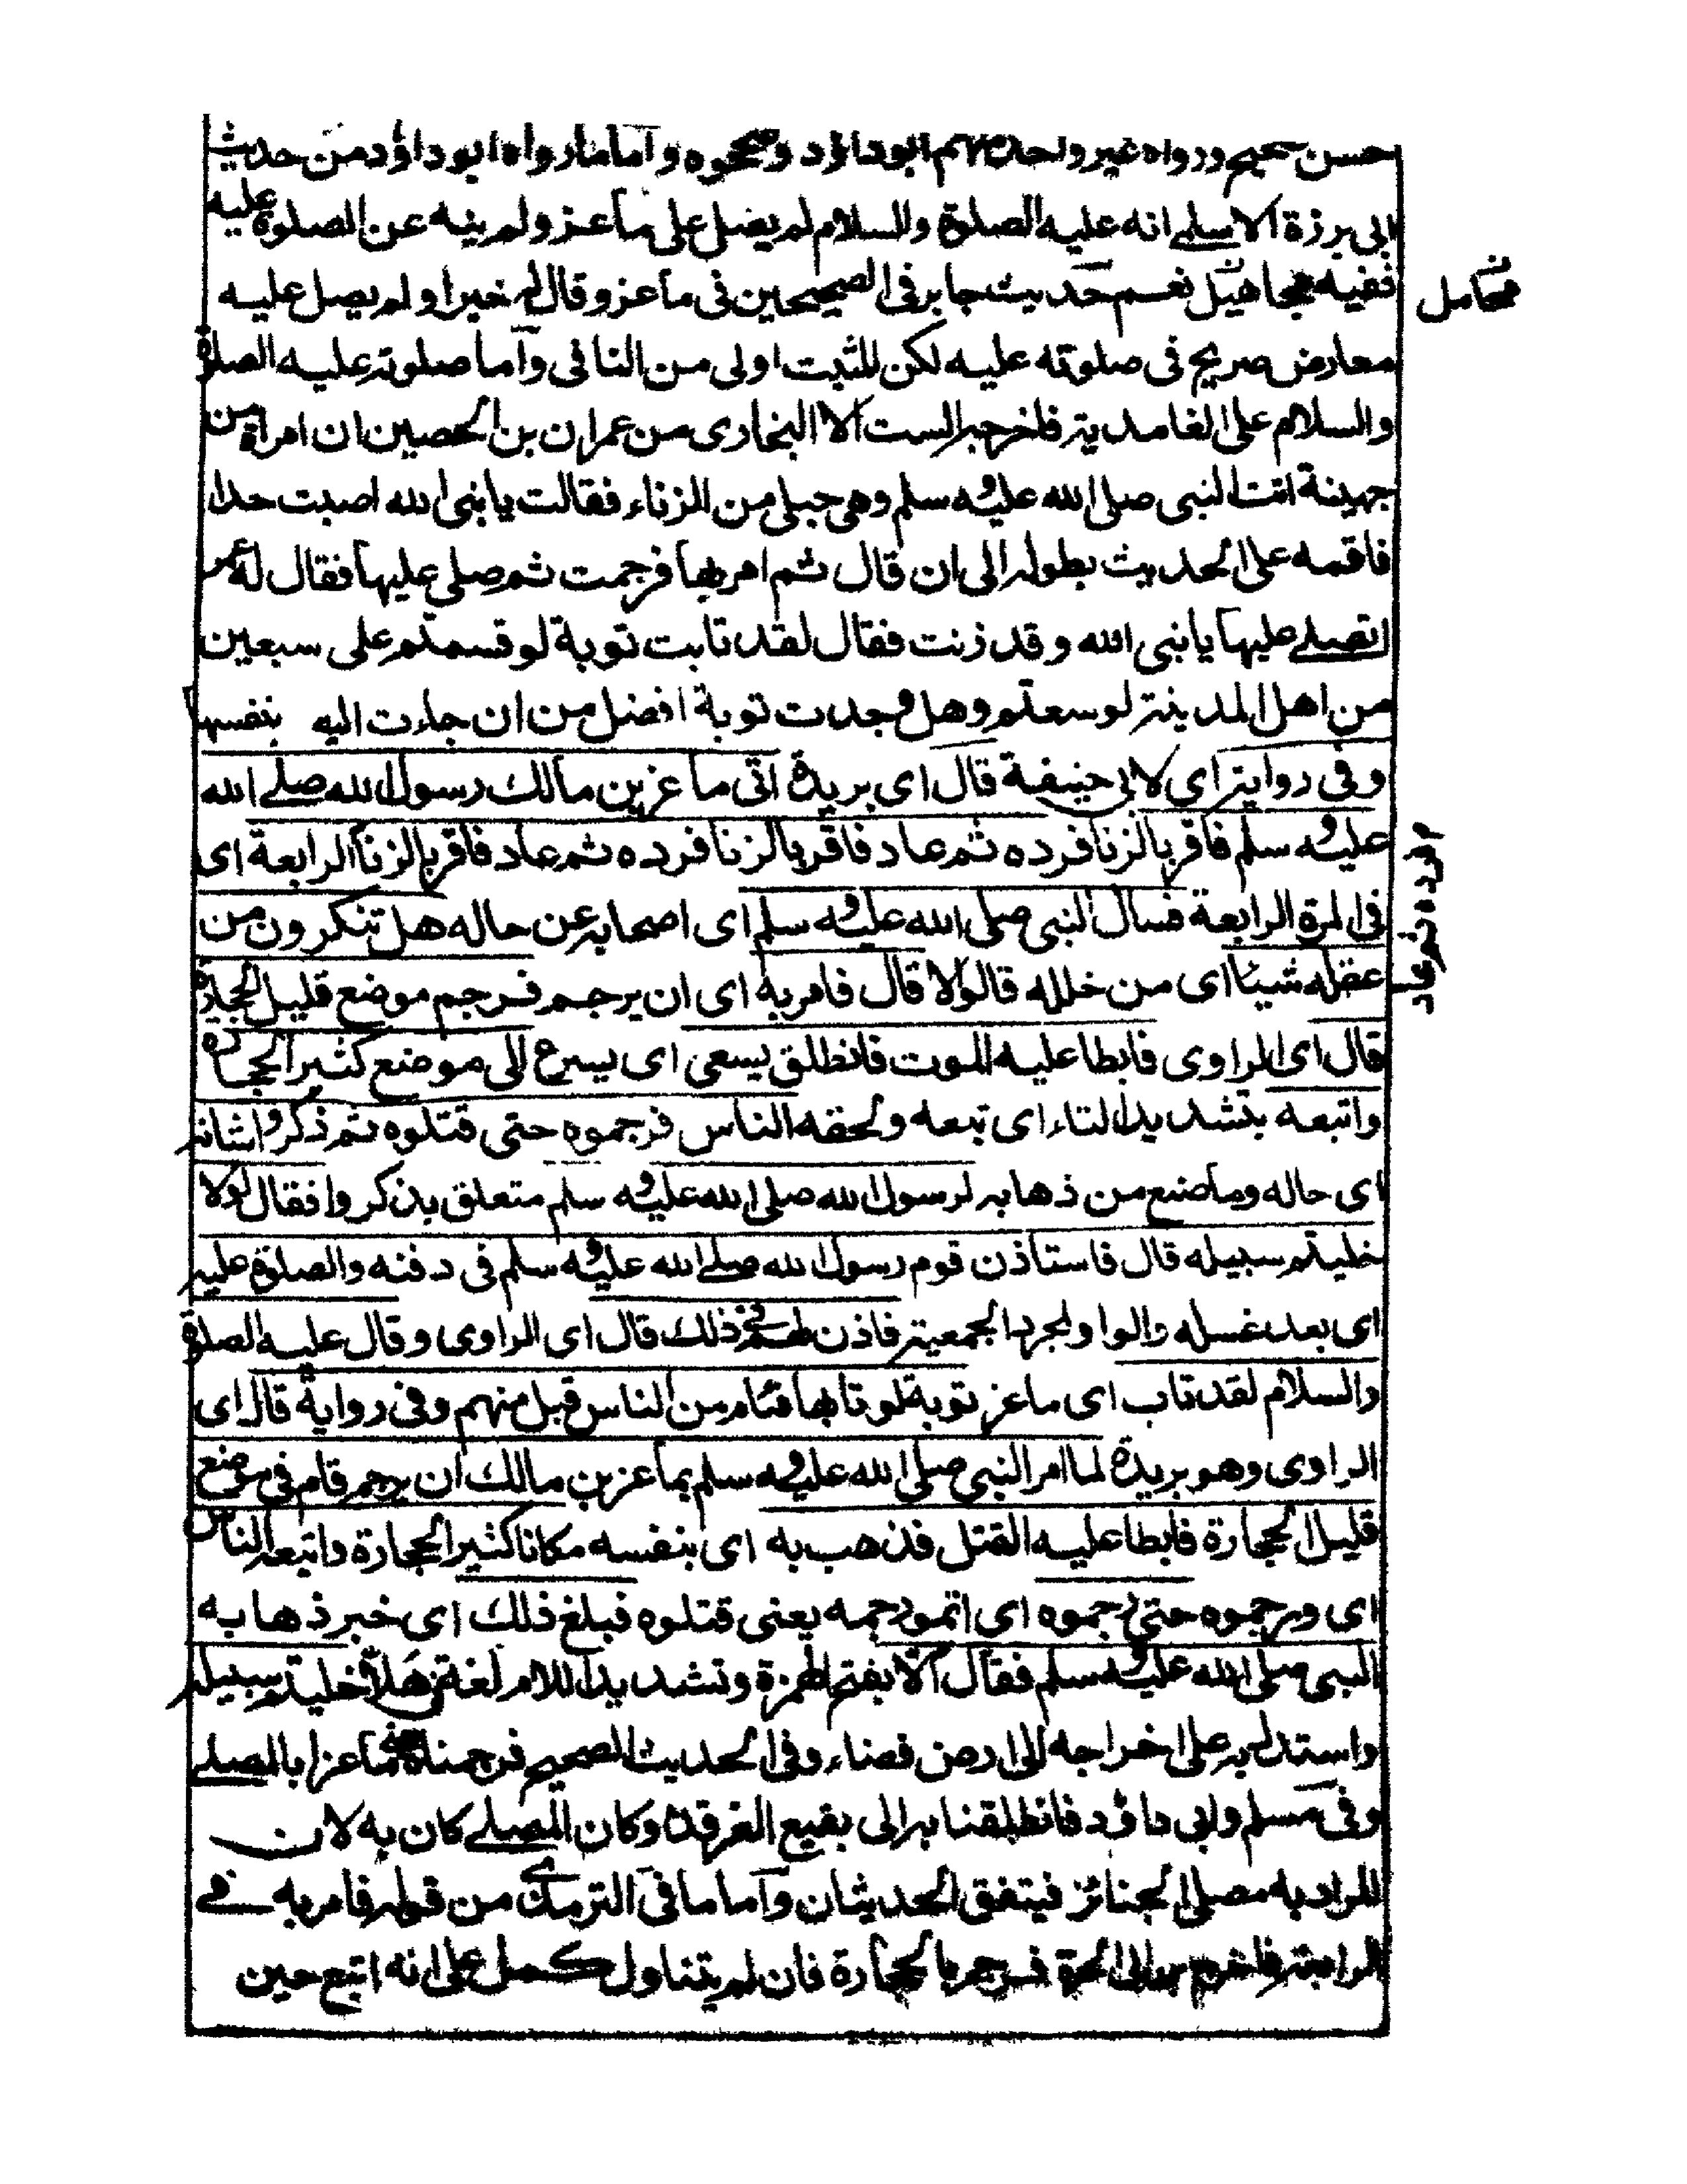 حسن صحيح ورواه غير واحد منهم ابو داؤد وصححوه واما ما رواه ابو داؤد من حديث
ابى برزة الاسلمے انه عليه الصلوة والسلام لم يصل على ماعز ولم ينه عن الصلوة عليه
ففيه مجاهيل نعم حديث جابر فى الصحيحين فى ماعز وقال له خيرا ولم يصل عليه
معارض صريح فى صلوته عليه لكن المثبت اولى من النافى واما صلوته عليه الصلوة
والسلام على الغامدية فاخرجه الستة الا البخارى من عمران بن الحصين ان امراة من
جهينة اتت النبى صلى الله عليه وسلم وهى حبلى من الزناء فقالت يا نبى الله اصبت حدا
فاقمه على الحديث بطوله الى ان قال ثم امر بها فرجمت ثم صلى عليها فقال له عمر
اتصلے عليها يا نبى الله وقد زنت فقال لقد تابت توبة لو قسمتم على سبعين
من اهل المدينة لوسعتم وهل وجدت توبة افضل من ان جاءت اليه بنفسها
وفى رواية اى لابى حنيفة قال اى بريدة اتى ماعز بن مالك رسول الله صلے الله
عليه وسلم فاقر بالزنا فرده ثم عاد فاقر بالزنا فرده ثم عاد فاقر بالزنا الرابعة اى
فى المرة الرابعة فسال النبى صلى الله عليه وسلم اى اصحابه عن حاله هل تنكرون من
عقله شيئا اى من خلله قالوا لا قال فامر به اى ان يرجم فرجم موضع قليل الحجارة
قال اى الراوى فابطا عليه الموت فانطلق يسعى اى يسرع الى موضع كثير الحجارة
واتبعه بتشديد التاء اى تبعه ولحقه الناس فرجموه حتى قتلوه ثم ذكروا شانه
اى حاله وما صنع من ذهابه لرسول الله صلى الله عليه وسلم متعلق بذكروا فقال لولا
خليتم سبيله قال فاستاذن قوم رسول الله صلے الله عليه وسلم فى دفنه والصلوة عليه
اى بعد غسله والواو لمجرد الجمعية فاذن لهم فے ذلك قال اى الراوى وقال عليه الصلوة
والسلام لقد تاب اى ماعز توبة لو تابها فئام من الناس قبل منهم وفى رواية قال اى
الراوى وهو بريدة لما امر النبى صلى الله عليه وسلم بماعز بن مالك ان يرجم قام فى موضع
قليل الحجارة فابطا عليه القتل فذهب به اى بنفسه مكانا كثير الحجارة واتبعه الناس
اى ورجموه حتى رجموه اى اتموا رجمه يعنى قتلوه فبلغ ذلك اى خبر ذهابه
النبى صلى الله عليه وسلم فقال الا بفتح الهمزة وتشديد اللام لغة فى هلا خليتم سبيله
واستدل به على اخراجه الى ارض فضاء وفى الحديث الصحيح فرجمناه ماعزا بالمصلے
وفى مسلم وابى داؤد فانطلقنا به الى بقيع الغرقد وكان المصلے كان به لان
المراد به مصلى الجنائز فيتفق الحديثان واما ما فى الترمذى من قوله فامر به فے
الرابعة فاخرج به الى الحرة فرجم بالحجارة فان لم يتناول حمل على انه اتبع حين
تحامل
فرده ثم عاد